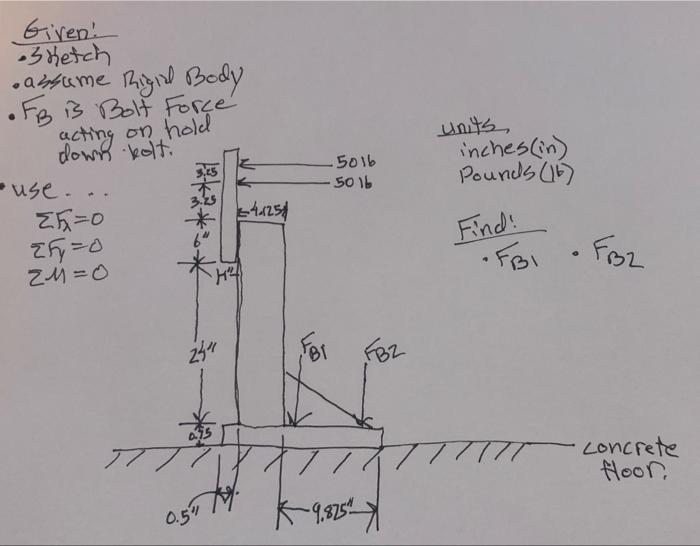 Given!
• Sketch
• assume Rigid Body
• FB is Bolt Force
acting on hold
down bolt.
• use ...
ΣFx=0
ΣFy=0
ΣM=0
units
inches(in)
Pounds(lb)
Find!
• FB1 • FB2
50 lb
50 lb
3.25
3.25
4.125"
6"
1"
24"
FB1
FB2
0.75
concrete
floor.
0.5"
9.825"